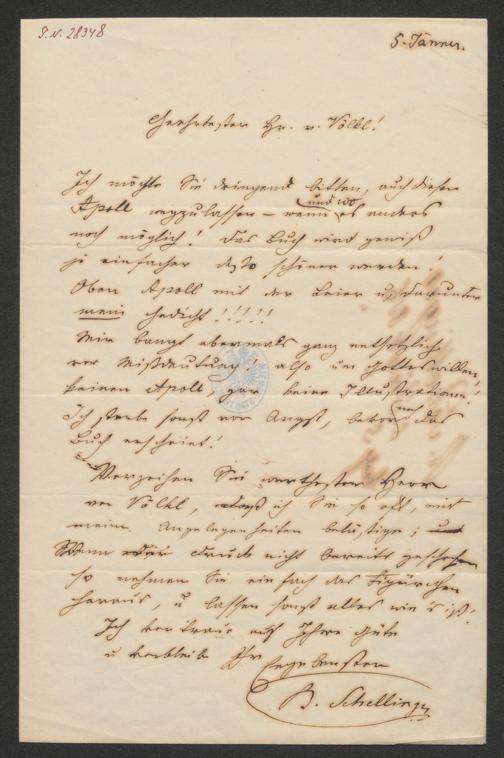 I.N. 28348
5. Jänner.
Geehrtester Hr. v. Völkl!
Ich möchte Sie dringend bitten, auch diesen
Apoll wegzulassen – wenn und wo es anders
noch möglich! Das Buch wird gewiß
je einfacher desto schöner werden!
Oben Apoll mit der Leier u. darunter
mein Gedicht!!!!!
Mir bangt abermals ganz entsetzlich
vor Mißdeutung! also um Gotteswillen
keinen Apoll, gar keine Illustration!
Ich sterbe sonst vor Angst, bevor das
Buch erscheint!
Verzeihen Sie werthester Herr
von Völkl, daß ich Sie so oft, mit
meinen Angelegenheiten belästige; und
Wenn der Druck nicht bereits geschehen
so nehmen Sie einfach das Figürchen
heraus, u lassen sonst alles wie's ist!
Ich vertraue auf Ihre Güte
u verbleibe Ihr Ergebenster
B. Schelling